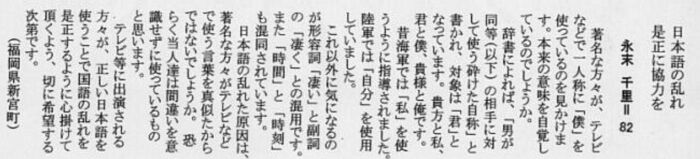 日本語の乱れ
是正に協力を
永末 千里＝82
著名な方々が、テレビ
などで一人称に「僕」を
使っているのを見かけま
す。本来の意味を自覚し
ているのでしょうか。
辞書によれば、「男が
同等（以下）の相手に対
して使う砕けた自称」と
書かれ、対象は「君」と
なっています。貴方と私、
君と僕、貴様と俺です。
昔海軍では「私」を使
うように指導されました。
陸軍では「自分」を使用
していました。
これ以外に気になるの
が形容詞「凄い」と副詞
の「凄く」との混用です。
また「時間」と「時刻」
も混同されています。
日本語の乱れた原因は、
著名な方々がテレビなど
で使う言葉を真似たから
ではないでしょうか。恐
らく当人達は間違いを意
識せずに使っているもの
と思います。
テレビ等に出演される
方々が、正しい日本語を
使うことで国語の乱れを
是正するように心掛けて
頂くよう、切に希望する
次第です。
（福岡県新宮町）